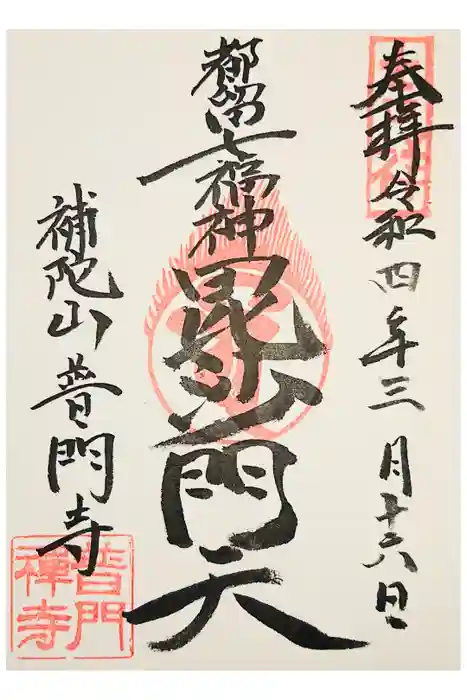 奉拝 令和四年三月十六日
都留七福神 毘沙門天
補陀山 普門寺
普門禅寺